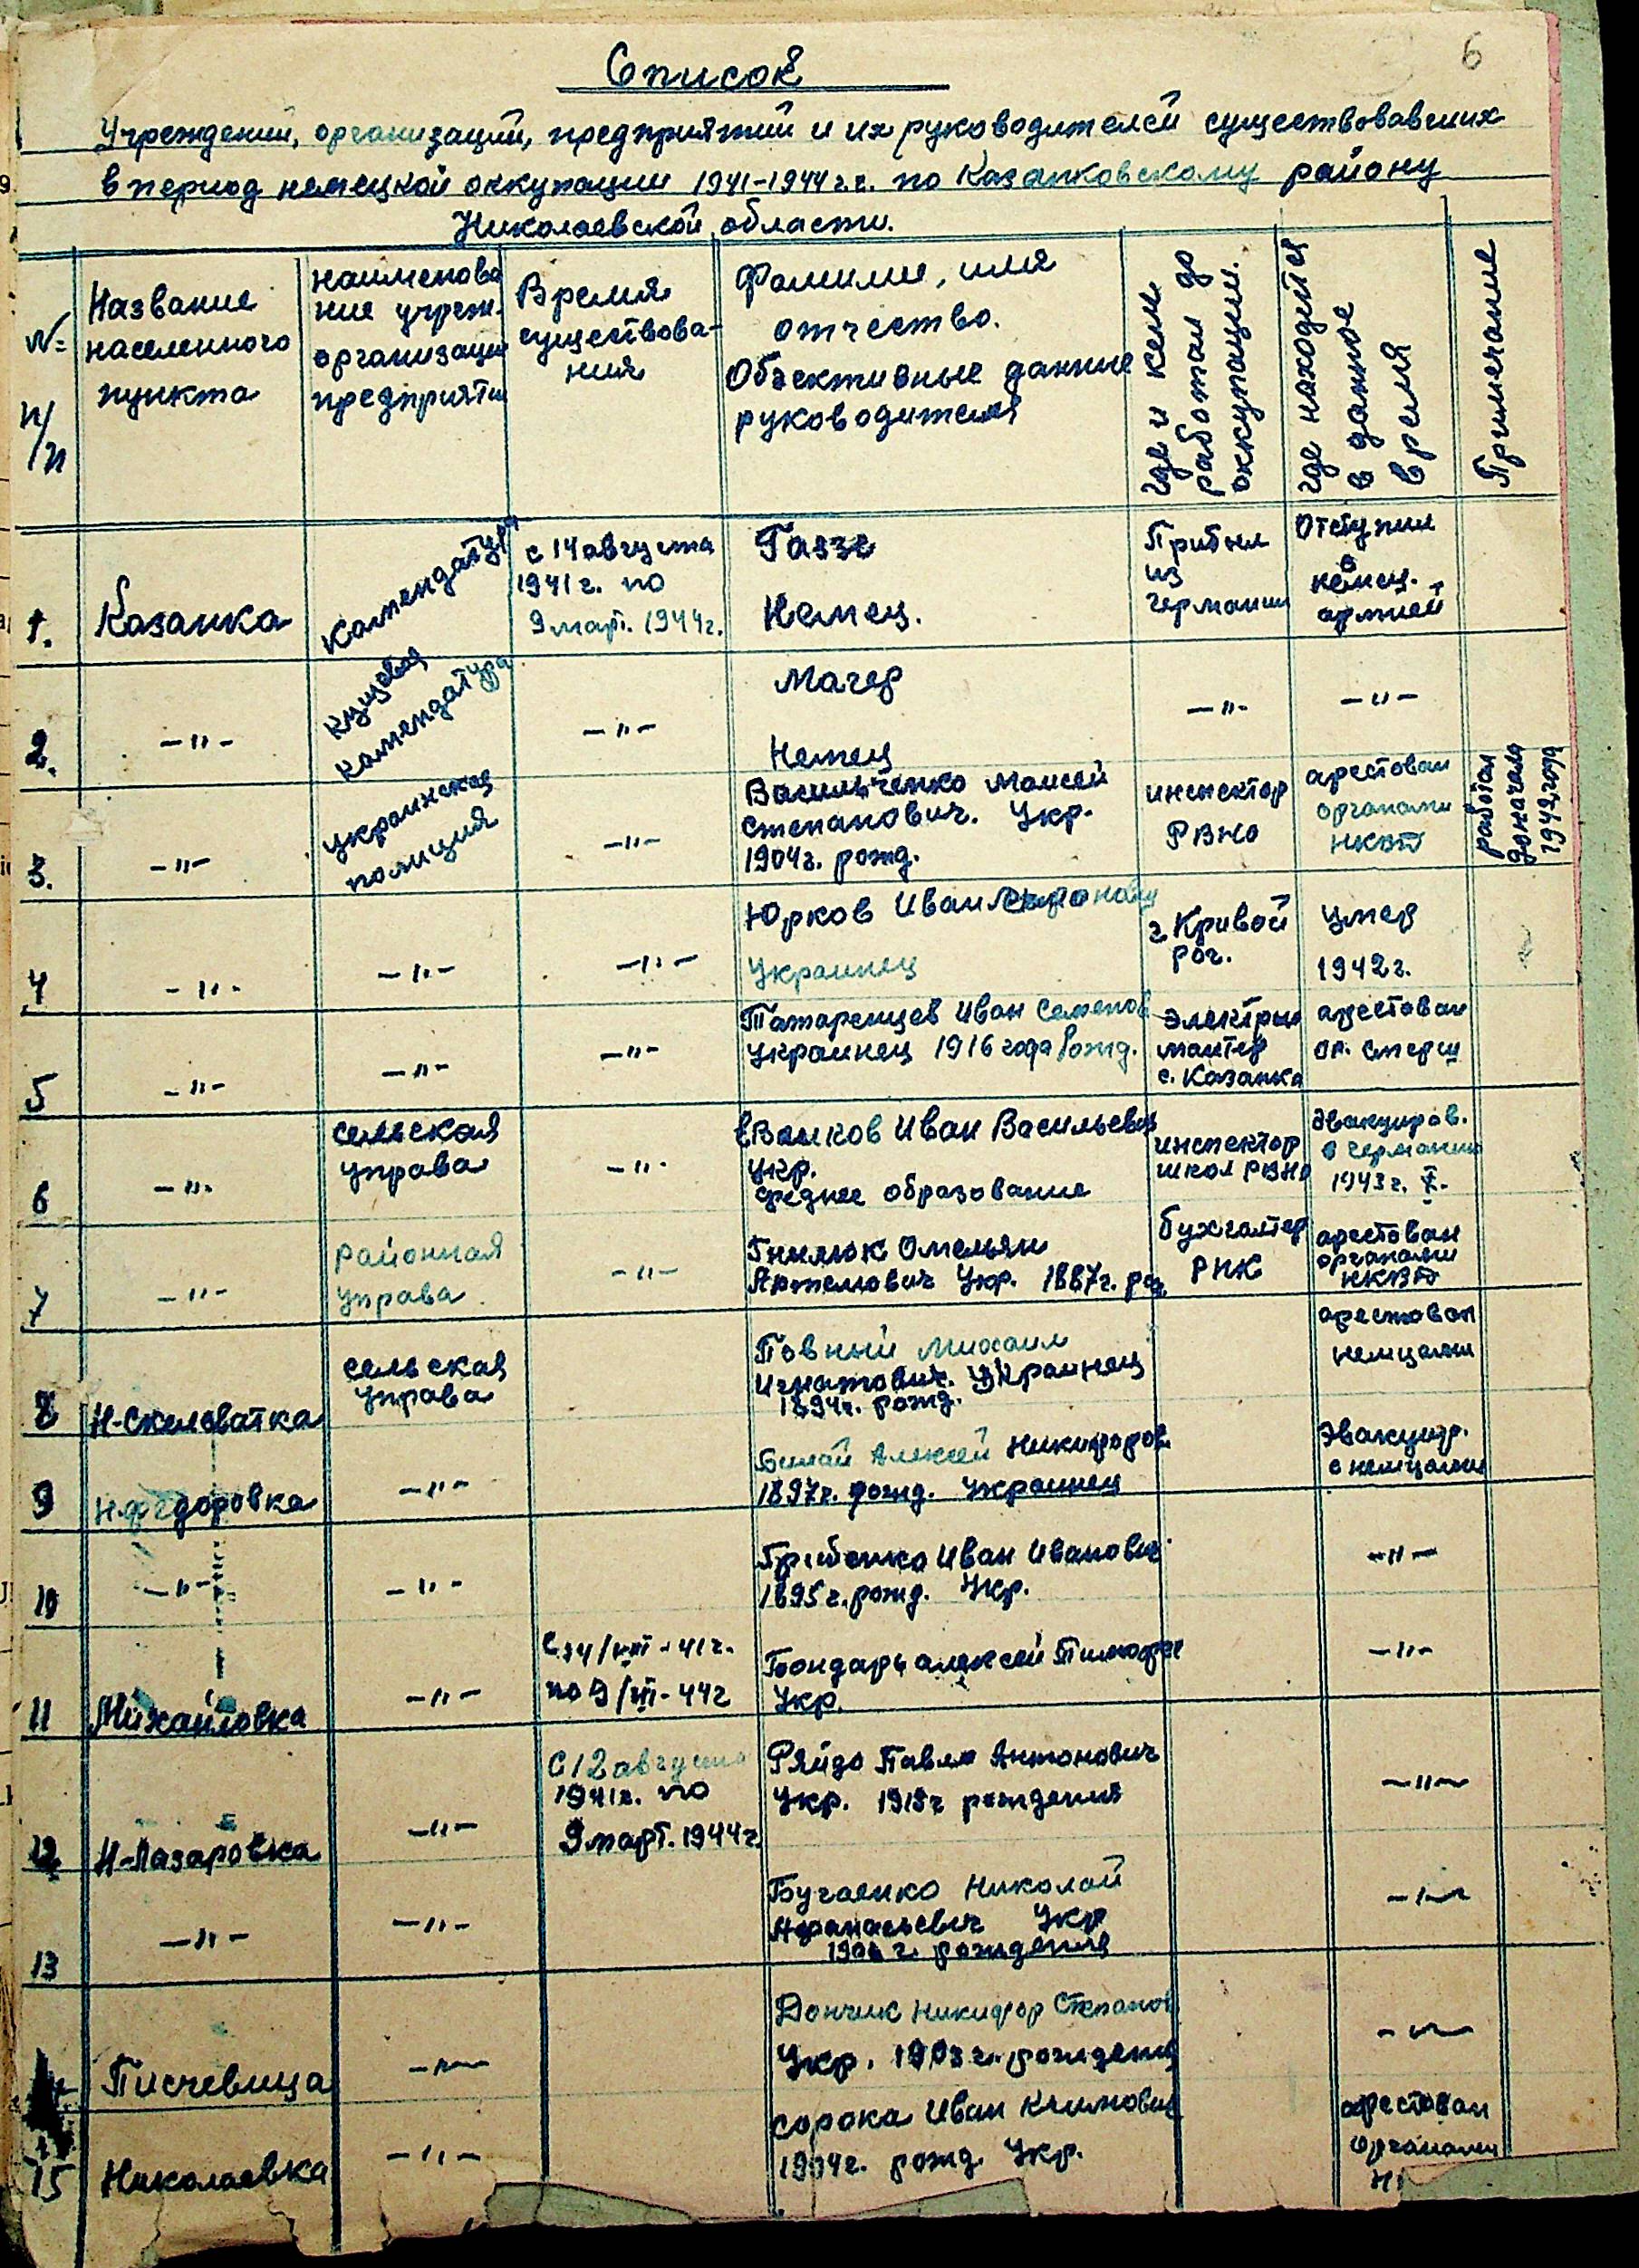 6
Список
Учреждений, организаций, предприятий и их руководителей существовавших
в период немецкой оккупации 1941-1944 г.г. по Казанковскому району
Николаевской области.
№
п/п
Название
населенного
пункта
наименова
ние учреж.
организаци
предприяти
Время
существова-
ния
Фамилие, имя
отчество.
Объективные данные
руководителя
где и кем
работал до
оккупации.
где находится
в данное
время
Примечание
1.
Казанка
Комендатура
с 14 августа
1941 г. по
9 март. 1944 г.
Газзе
Немец.
Прибыл
из
германии
Отступил
с
немец.
армией
2.
-"-
кущевая
комендатура
-"-
Мачер
Немец
-"-
-"-
3.
-"-
украинская
полиция
-"-
Васильченко Моисей
Степанович. Укр.
1904 г. рожд.
инспектор
РВНО
арестован
органами
НКВД
работал
до начала
1942 года
4
-"-
-"-
-"-
Юрков Иван
Украинец
г. Кривой
рог.
умер
1942 г.
5
-"-
-"-
-"-
Татаренцев Иван Семенов
украинец 1916 года рожд.
электро
монтер
с. Казанка
арестован
ор. смерш
6
-"-
сельская
управа
-"-
Иван Васильевич
укр.
среднее образование
инспектор
школ РВНО
Эвакуиров.
в германию
1943 г. X.
7
-"-
районная
управа
-"-
Гнилюк Омельян
Артемович Укр. 1887 г. рож
бухгалтер
РНК
арестован
органами
НКВД
8
Н-Скелеватка
сельская
управа
Повный Михаил
Игнатович. Украинец
1894 г. рожд.
арестован
немцами
9
Н-федоровка
-"-
Билай Алексей Никифоров
1897 г. рожд. Украинец
Эвакуир.
с немцами
10
-"-
-"-
Грибенко Иван Иванович
1895 г. рожд. Укр.
-"-
11
Михайловка
-"-
С 14/VIII-41 г.
по 9/III-44 г
Бондарь алексей Тимофее
Укр.
-"-
12
Н-Лазаровка
-"-
С 12 августа
1941 г. по
9 март. 1944 г.
Ряйдо Павло Антонович
Укр. 1915 г рождения
-"-
13
-"-
-"-
Бугаенко Николай
Афанасьевич Укр
г. рождения
-"-
Писчевица
-"-
Дончик Никифор Степанов
Укр. 1903 г. рождения
-"-
15
Николаевка
-"-
сорока Иван Климович
1904 г. рожд. Укр.
арестован
органами